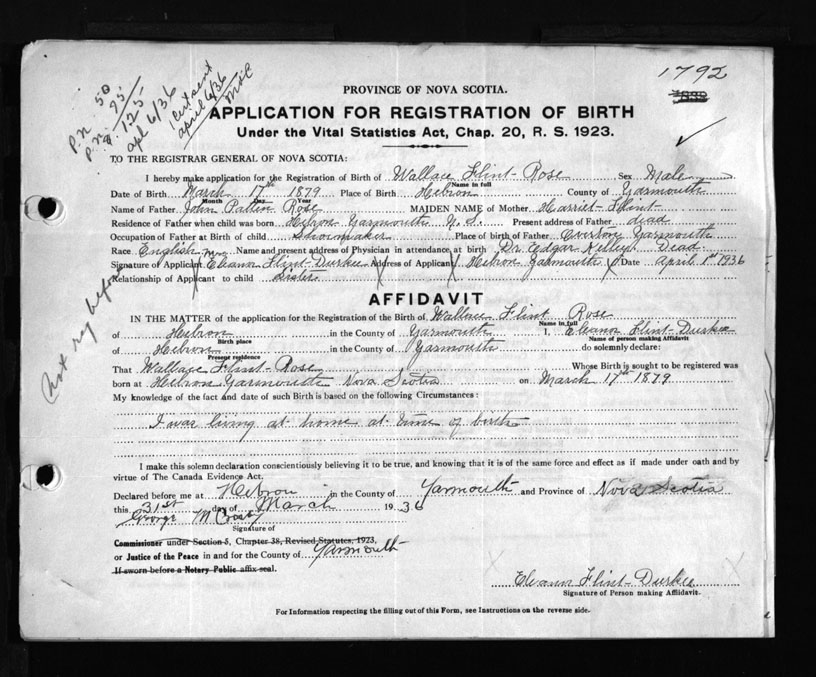 1792
P.n. 50
P.n. 75
125
apl 6/36
Cert sent
april 6/36
PROVINCE OF NOVA SCOTIA.
APPLICATION FOR REGISTRATION OF BIRTH
Under the Vital Statistics Act, Chap. 20, R. S. 1923.
TO THE REGISTRAR GENERAL OF NOVA SCOTIA:
I hereby make application for the Registration of Birth of Wallace Flint-Rose Sex Male
Name in full
Date of Birth March 17th 1879 Place of Birth Hebron County of Yarmouth
Month Day Year
Name of Father John Rose MAIDEN NAME of Mother Harriet Flint
Residence of Father when child was born Hebron Yarmouth N.S. Present address of Father dead
Occupation of Father at Birth of child Shoemaker Place of birth of Father Yarmouth
Race English Name and present address of Physician in attendance at birth Dr. Edgar Kelley Dead
Signature of Applicant Mrs Eleanor Flint-Durkee Address of Applicant Hebron Yarmouth Date April 1st 1936
Relationship of Applicant to child Sister
not reg before
AFFIDAVIT
IN THE MATTER of the application for the Registration of the Birth of Wallace Flint Rose
Name in full
of Hebron in the County of Yarmouth I, Eleanor Flint-Durkee
Birth place Name of person making Affidavit
of Hebron in the County of Yarmouth do solemnly declare:
Present residence
That Wallace Flint-Rose Whose Birth is sought to be registered was
born at Hebron Yarmouth Nova Scotia on March 17th 1879
My knowledge of the fact and date of such Birth is based on the following Circumstances:
I was living at home at time of birth
I make this solemn declaration conscientiously believing it to be true, and knowing that it is of the same force and effect as if made under oath and by
virtue of The Canada Evidence Act.
Declared before me at Hebron in the County of Yarmouth and Province of Nova Scotia
this 31st day of March 1936
George M Crosby
Signature of
Commissioner under Section 5, Chapter 38, Revised Statutes, 1923,
or Justice of the Peace in and for the County of Yarmouth
If sworn before a Notary Public affix seal.
Eleanor Flint-Durkee
Signature of Person making Affidavit.
For Information respecting the filling out of this Form, see Instructions on the reverse side.